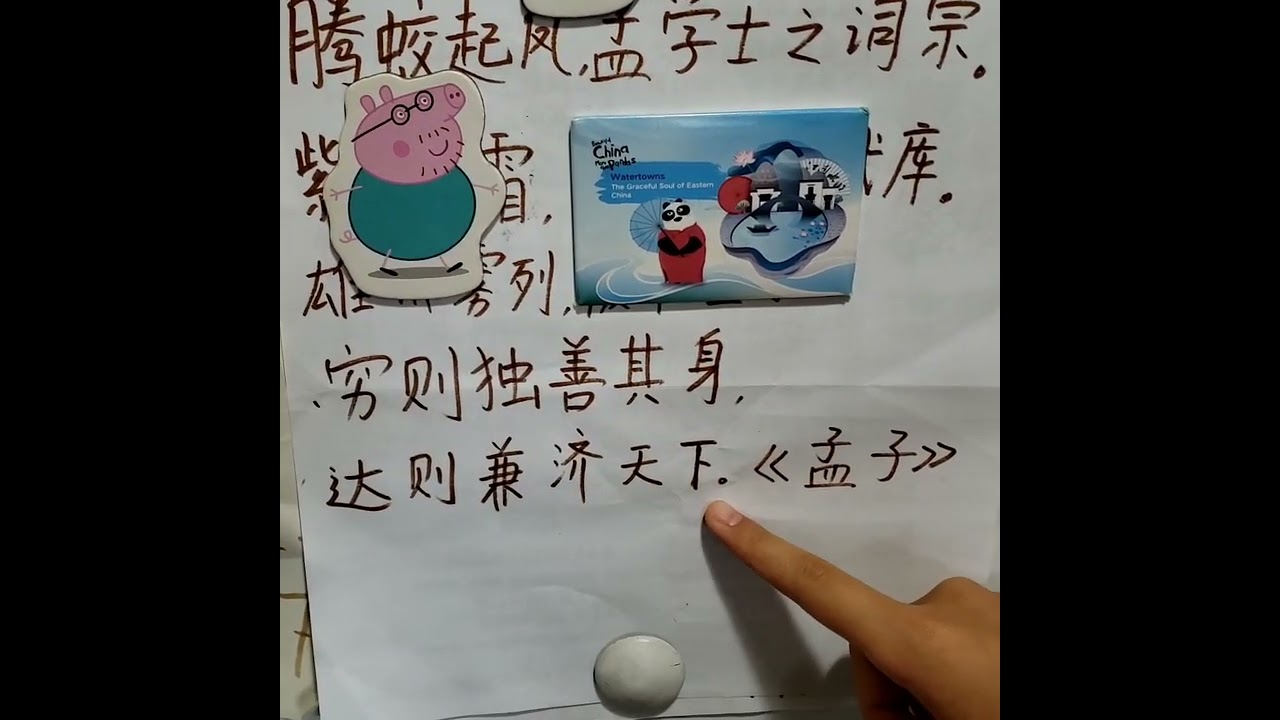 腾蛟起凤,孟学士之词宗。
紫 霜, 库。
雄 雾列,
China
Pandas
Watertowns
The Graceful Soul of Eastern
China
穷则独善其身,
达则兼济天下。《孟子》